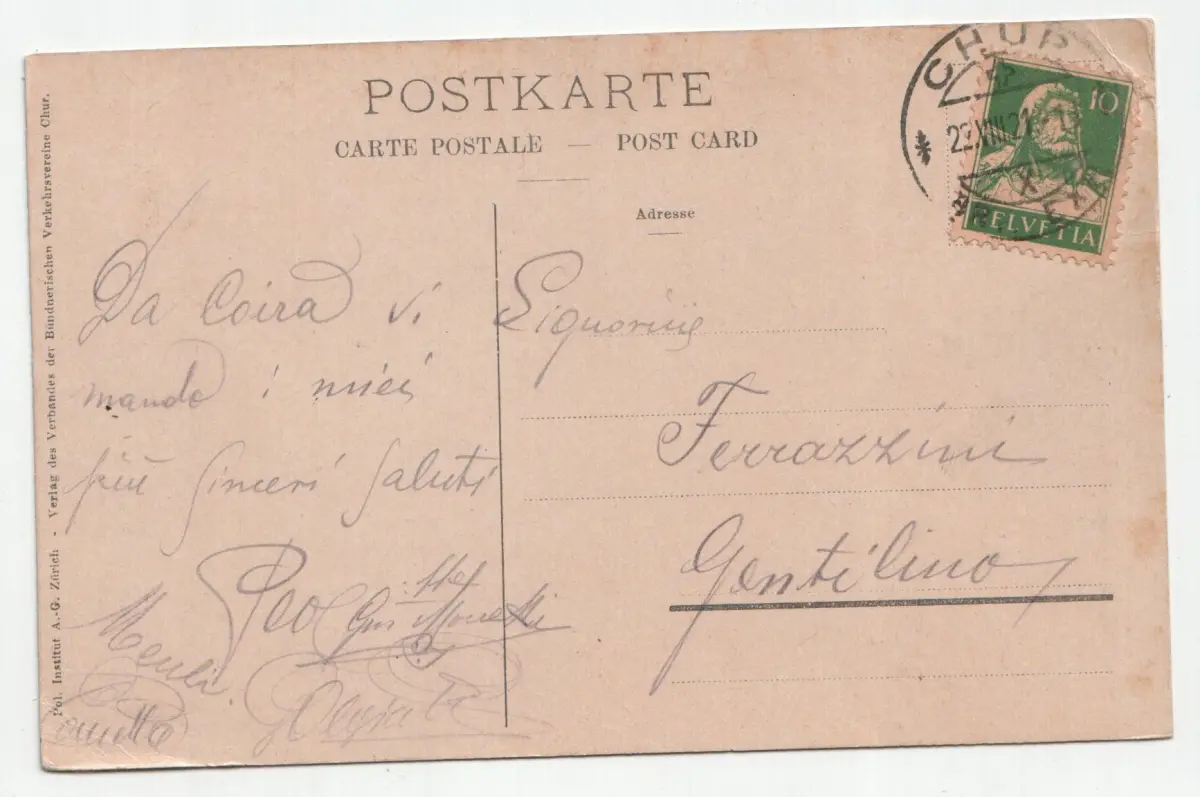 POSTKARTE
CARTE POSTALE — POST CARD
Adresse
CHUR
22.VIII.21
10
HELVETIA
Pol. Institut A.-G. Zürich - Verlag des Verbandes der Bündnerischen Verkehrsvereine Chur.
Da Coira vi
mando i miei
più sinceri saluti
Signorine
Ferrazzini
Gentilino